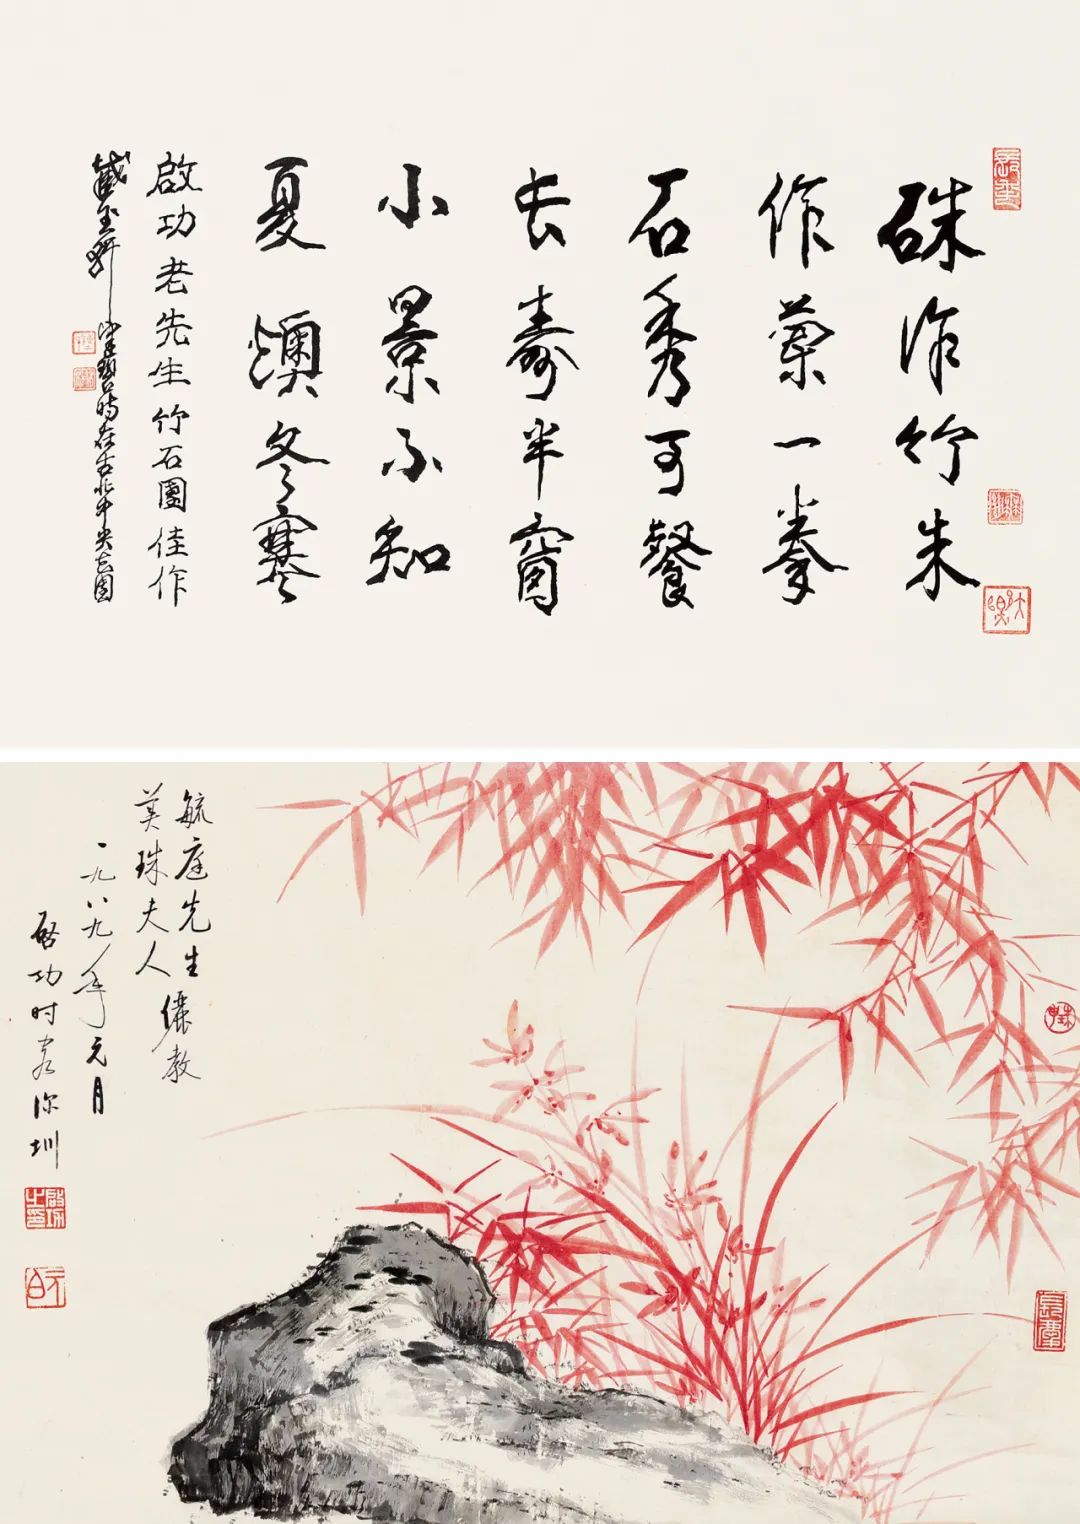 硃泎竹朱
作兰一拳
石秀可餐
长寿半窗
小景不知
夏燠冬寒
啟功老先生竹石圖佳作
時在古北中央公園
毓庭先生
美珠夫人儷教
一九八九年元月
启功时客深圳